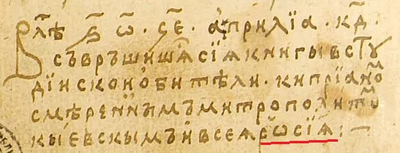 В лѣⷮ ҂ѕ҃ ѿ҃ · ч҃е · априлїа · к҃д ·
съврꙿшишѧ сїѧ книгы в стꙋ
дїискои обители · кипрїаноⷨ
смѣреннымъ митрополитѡⷨ
кыевскымъ и всеѧ рѡсїѧ :—